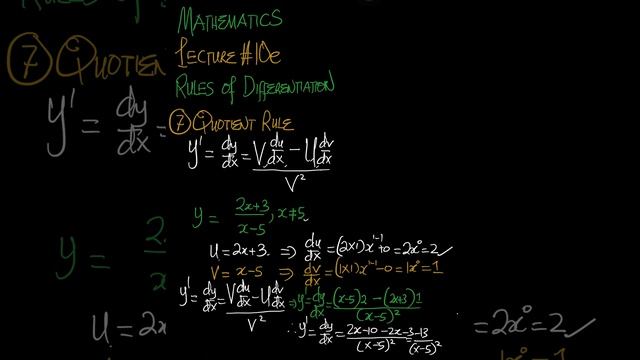 MATHEMATICS
LECTURE #10e
RULES OF DIFFERENTIATION
⑦ QUOTIENT RULE
y' = dy/dx = (V du/dx - U dv/dx)/V²
y = (2x+3)/(x-5), x≠5.
U = 2x+3. ⇒ du/dx = (2×1)x¹⁻¹+0 = 2x⁰ = 2 ✓
V = x-5 ⇒ dv/dx = (1×1)x¹⁻¹-0 = 1x⁰ = 1
y' = dy/dx = (V du/dx - U dv/dx)/V² ⇒ y' = dy/dx = ((x-5)2 - (2x+3)1)/(x-5)²
∴ y' = dy/dx = (2x-10-2x-3)/(x-5)² -13/(x-5)²
⑦ QUOTIEN
y' = dy/dx =
y = 2
U = 2x
= 2x⁰ = 2 ✓